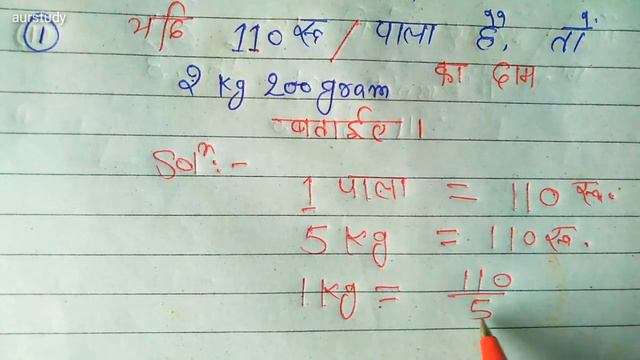 aurstudy
① यदि 110 रु / पाला है, तो
2 Kg 200 gram का दाम
बताईए।
Solⁿ:-
1 पाला = 110 रु.
5 Kg = 110 रु.
1 Kg = 110/5